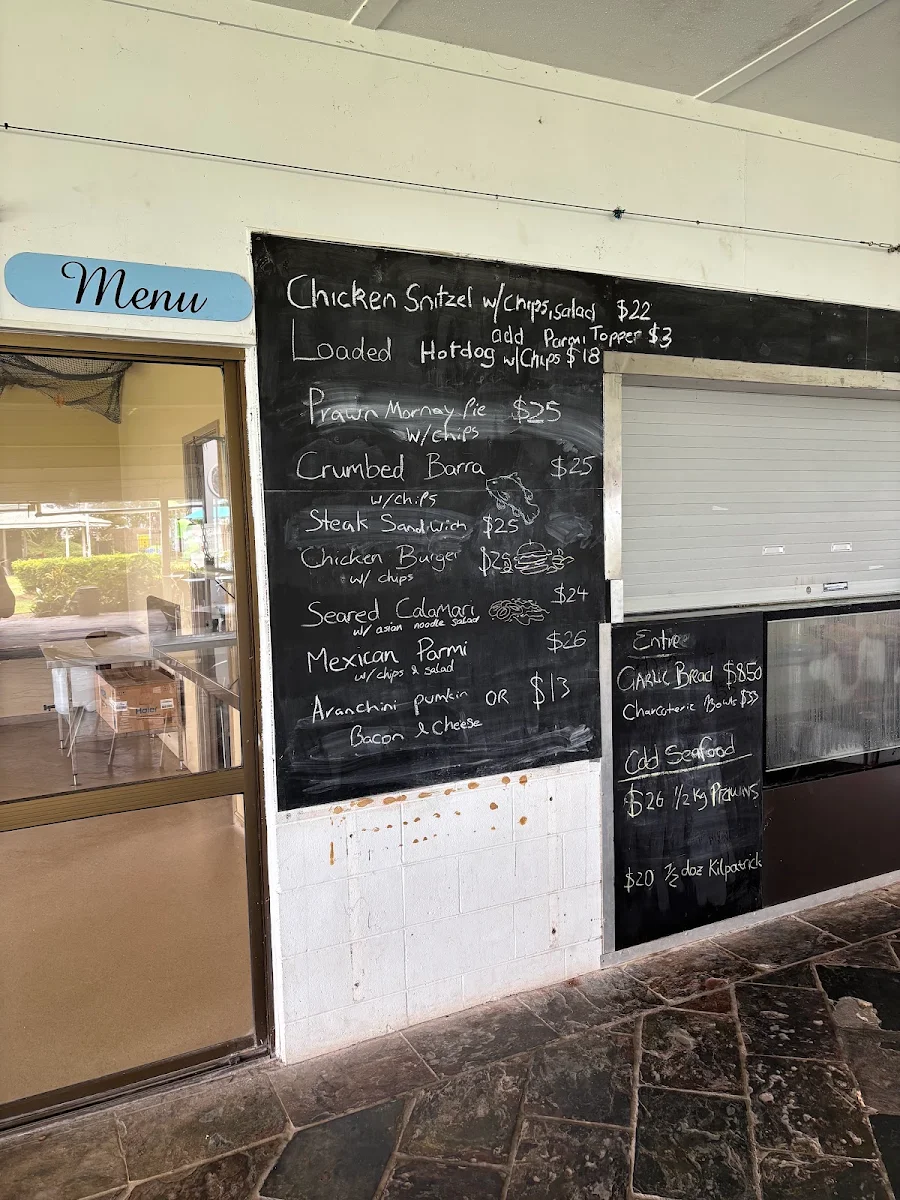 Menu
Chicken Snitzel w/chips, salad $22
add Parmi Topper $3
Loaded Hotdog w/Chips $18
Prawn Mornay Pie $25
w/chips
Crumbed Barra $25
w/chips
Steak Sandwich $25
Chicken Burger
w/ chips
Seared Calamari $24
w/ asian noodle salad
Mexican Parmi $26
w/chips & salad
Aranchini pumkin OR $13
Bacon & Cheese
Entree
GARLIC BREAD $850
Charcuterie Bowls
Cold Seafood
$26 1/2 kg PRAWNS
$20 1/2 doz Kilpatrick
Haier